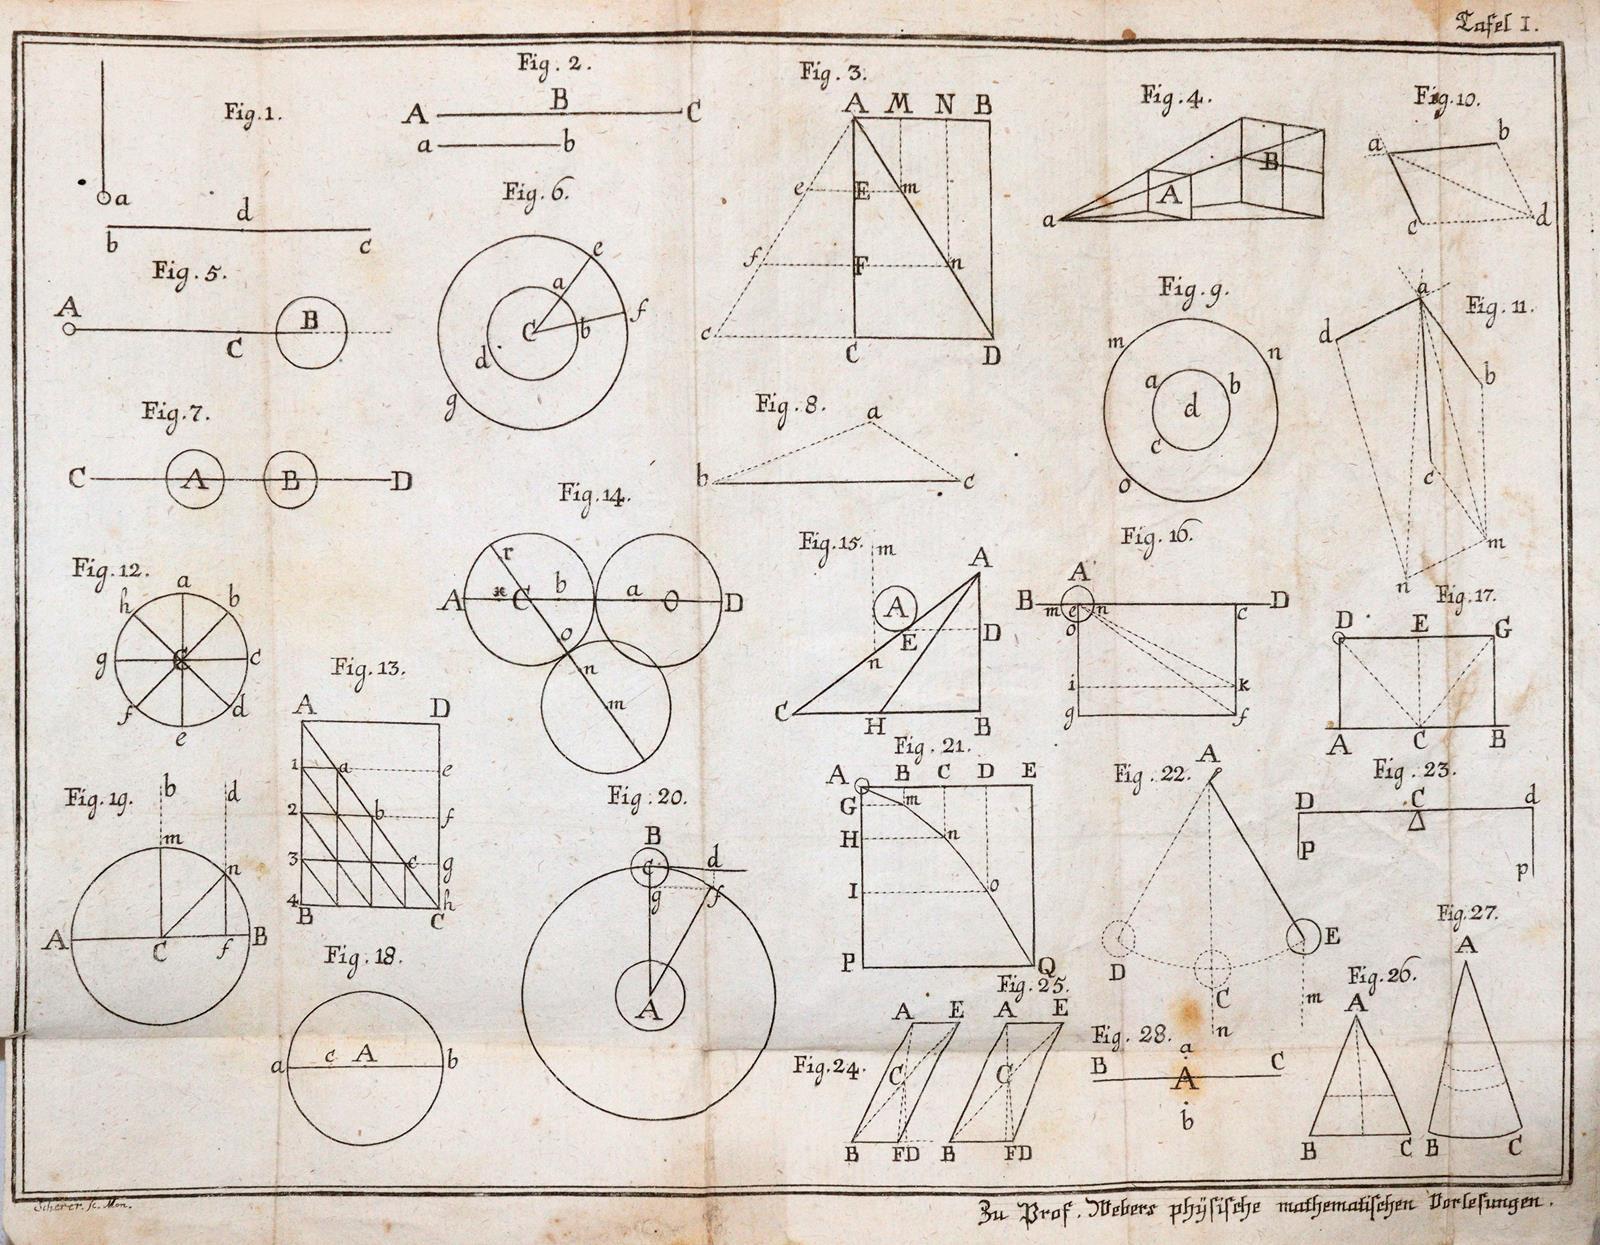 Tafel I.
Fig. 1.
a
b d c
Fig. 2.
A B C
a b
Fig. 3.
A M N B
e E m
f F n
c C D
Fig. 4.
a A B
Fig. 10.
a b
c d
Fig. 5.
A C B
Fig. 6.
e
a f
C b
d
g
Fig. 9.
m n
a b
d
c
o
Fig. 11.
a
d
b
c
m
n
Fig. 7.
C A B D
Fig. 8.
a
b c
Fig. 12.
a
h b
g C c
f d
e
Fig. 13.
A D
1 a e
2 b f
3 c g
4 h
B C
Fig. 14.
r
A x C b a O D
o
n
m
Fig. 15.
m
A
A
E D
n
C H B
Fig. 16.
A
B m e n c D
o
i k
g f
Fig. 17.
D E G
A C B
Fig. 19.
b d
m
n
A C f B
Fig. 18.
a c A b
Fig. 20.
B
c d
g f
A
Fig. 21.
A B C D E
G m
H n
I o
P Q
Fig. 22.
A
D E
C m
n
Fig. 23.
D C d
P p
Fig. 24.
A E
C
B F D
Fig. 25.
A E
C
B F D
Fig. 28.
a
B A C
b
Fig. 26.
A
B C
Fig. 27.
A
B C
Scherer. sc. Mon.
Zu Prof. Webers physische mathematischen Vorlesungen.